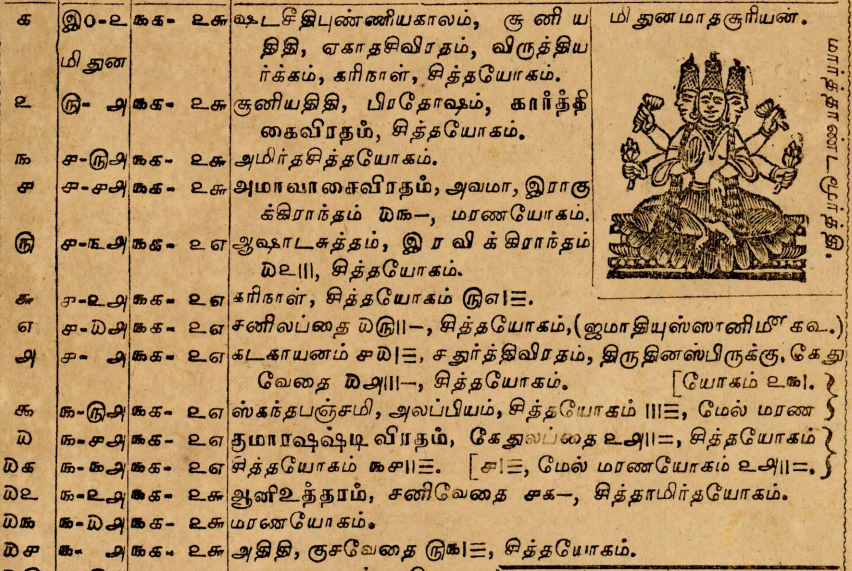 க இ௦-உ ௩க- உ௬ ஷடசீதிபுண்ணியகாலம், சூனிய
மிதுன திதி, ஏகாதசிவிரதம், விருத்திய
ர்க்கம், கரிநாள், சித்தயோகம்.
உ ௫- அ ௩க- உ௬ சூனியதிதி, பிரதோஷம், கார்த்தி
கைவிரதம், சித்தயோகம்.
௩ ௪-௫அ ௩க- உ௬ அமிர்தசித்தயோகம்.
௪ ௪-௪அ ௩க- உ௬ அமாவாசைவிரதம், அவமா, இராகு
க்கிராந்தம் ௰௩–, மரணயோகம்.
௫ ௪-௩அ ௩க- உஎ ஆஷாடசுத்தம், இரவிக்கிராந்தம்
௰உ|||, சித்தயோகம்.
௬ ௪-உஅ ௩க- உஎ கரிநாள், சித்தயோகம் ௫எ|☰.
எ ௪-௰அ ௩க- உஎ சனிலப்தை ௰௫||–, சித்தயோகம்,(ஜமாதியுஸ்ஸானிமீ௴ கவ.)
அ ௪- அ ௩க- உஎ கடகாயனம் ௪௰|☰, சதுர்த்திவிரதம், திருதினஸ்பிருக்கு, கேது
வேதை ௰அ|||–, சித்தயோகம். [யோகம் உ௩|.
௯ ௩-௫அ ௩க- உஎ ஸ்கந்தபஞ்சமி, அலப்பியம், சித்தயோகம் |||☰, மேல் மரண
௰ ௩-௪அ ௩க- உஎ குமாரஷஷ்டி விரதம், கேதுலப்தை உஅ||=, சித்தயோகம்
௰க ௩-௩அ ௩க- உஎ சித்தயோகம் ௩௪||☰. [௪|☰, மேல் மரணயோகம் உஅ||=.
௰உ ௩-உஅ ௩க- உ௬ ஆனிஉத்தரம், சனிவேதை ௪க–, சித்தாமிர்தயோகம்.
௰௩ ௩-௰அ ௩க- உ௬ மரணயோகம்.
௰௪ ௩- அ ௩க- உ௬ அதிதி, குசவேதை ௫௩|☰, சித்தயோகம்.
மிதுனமாதசூரியன்.
மார்த்தாண்டமூர்த்தி.